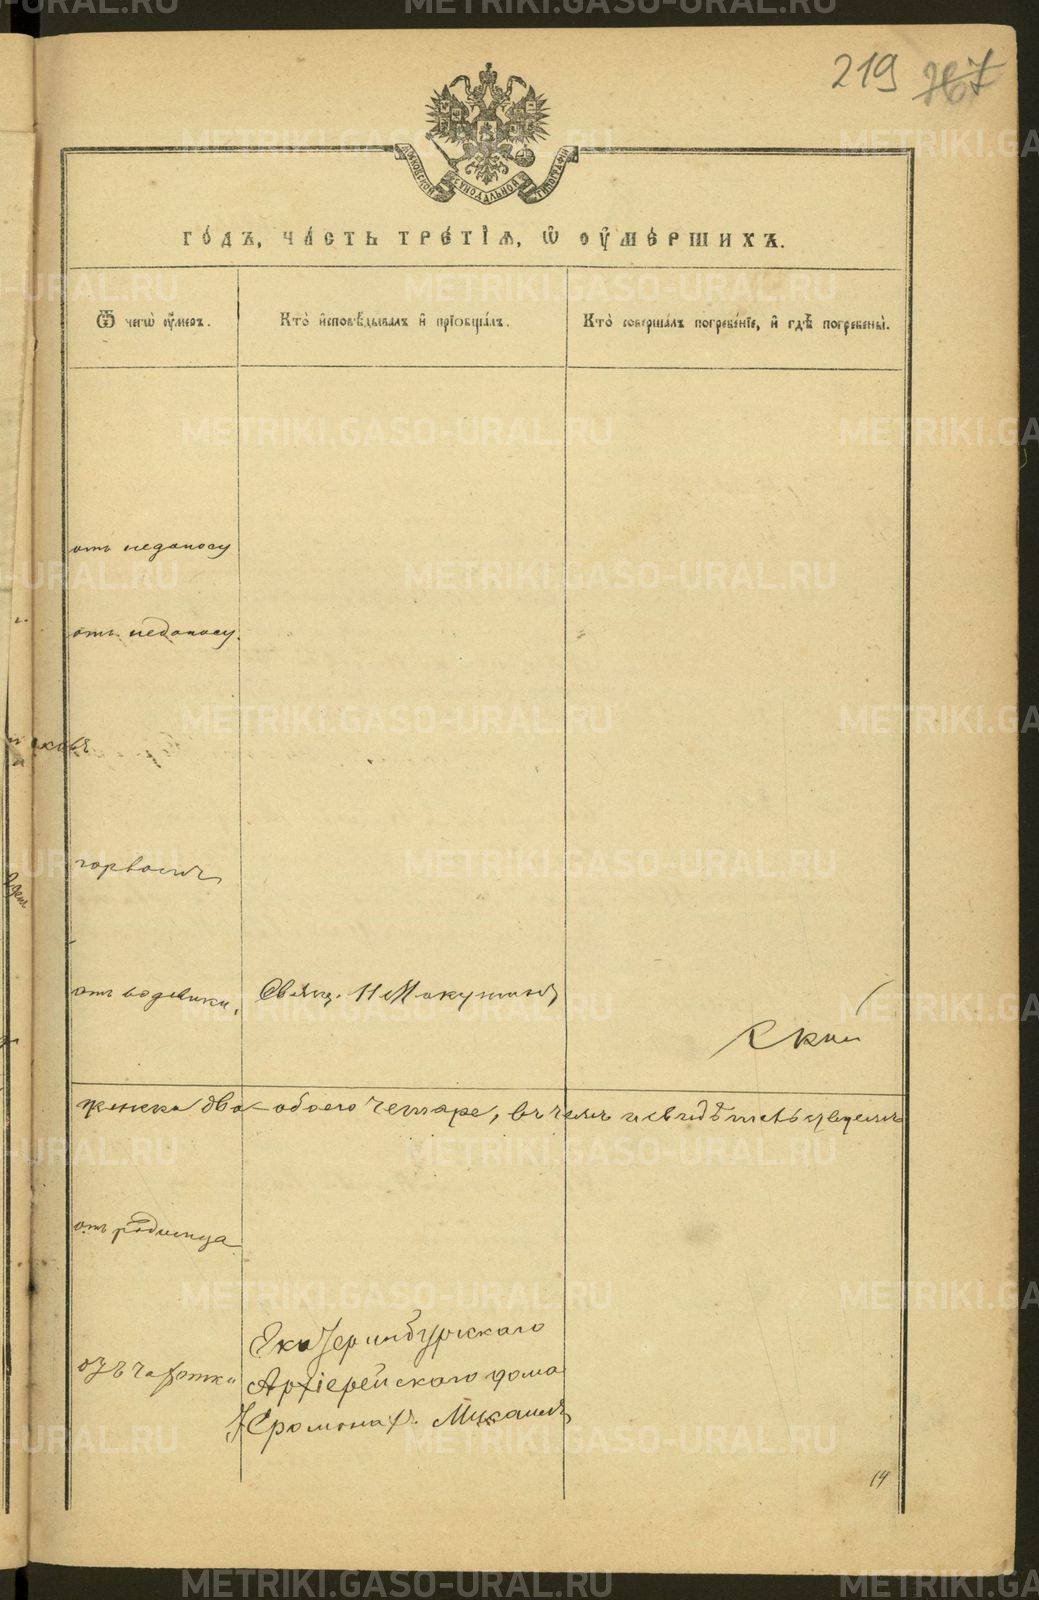 219 767
МОСКОВСКОЙ СѴНОДАЛЬНОЙ ТИПОГРАФІИ
го́дъ, ча́сть тре́тїѧ, ѡ҆ ᲂу҆ме́ршихъ.
Ѿ чегѡ̀ ᲂу҆́меръ.
Кто̀ и҆сповѣ́дывалъ и҆ прїѡбща́лъ.
Кто̀ соверша́лъ погребе́нїе, и҆ гдѣ̀ погребены̀.
отъ недоносу
отъ недоносу.
отъ водянки.
Свящ. Н Макушинъ
женска два обоего четыре, въ чемъ и свидѣтельствуемъ
отъ родимца
отъ чахотки
Екатеринбургскаго
Архіерейскаго дома
Іеромонах. Михаилъ
14
METRIKI.GASO-URAL.RU